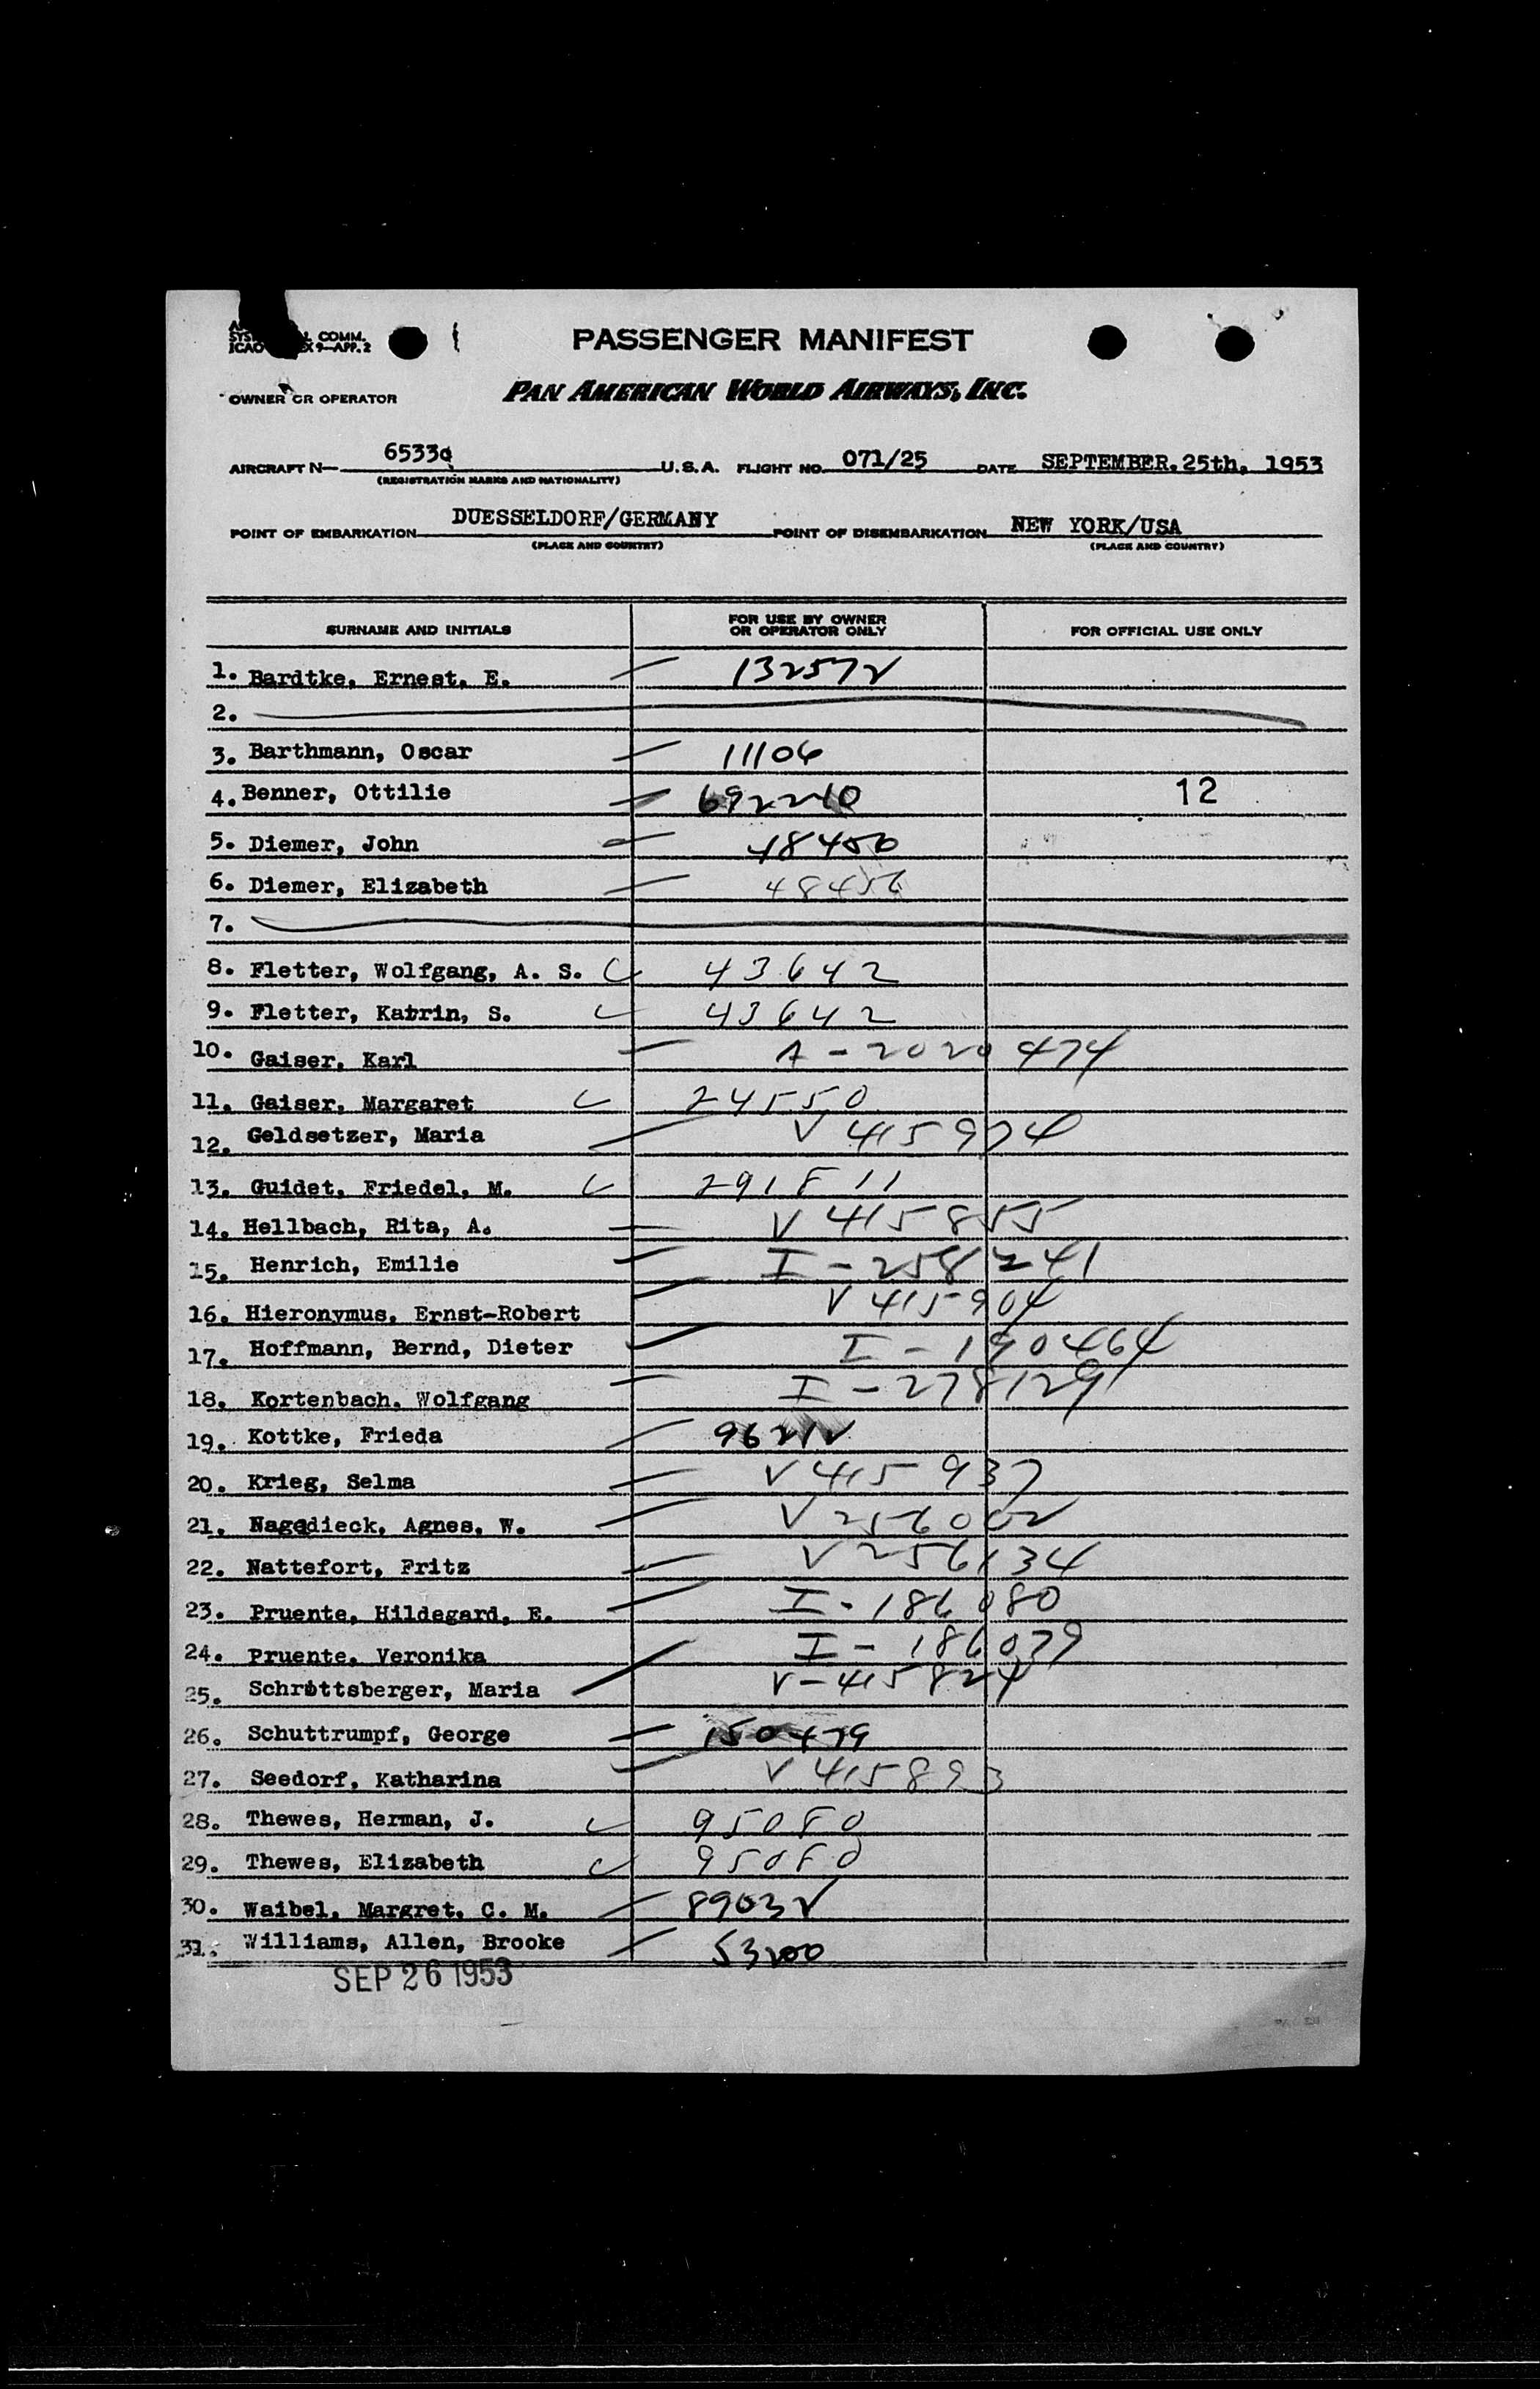 COMM.
ICAO X 9—APP. 2
PASSENGER MANIFEST
OWNER OR OPERATOR
PAN AMERICAN WORLD AIRWAYS, INC.
AIRCRAFT N— 6533 U.S.A. FLIGHT NO. 071/25 DATE SEPTEMBER, 25th, 1953
(REGISTRATION MARKS AND NATIONALITY)
POINT OF EMBARKATION DUESSELDORF/GERMANY POINT OF DISEMBARKATION NEW YORK/USA
(PLACE AND COUNTRY) (PLACE AND COUNTRY)
SURNAME AND INITIALS FOR USE BY OWNER OR OPERATOR ONLY FOR OFFICIAL USE ONLY
1. Bardtke, Ernest, E. 132572
2.
3. Barthmann, Oscar 11106
4. Benner, Ottilie 692210 12
5. Diemer, John 48456
6. Diemer, Elizabeth 48456
7.
8. Fletter, Wolfgang, A. S. 43642
9. Fletter, Katrin, S. 43642
10. Gaiser, Karl A-2020474
11. Gaiser, Margaret 24550
12. Geldsetzer, Maria V 415974
13. Guidet, Friedel, M. 291811
14. Hellbach, Rita, A. V 415855
15. Henrich, Emilie I-258241
16. Hieronymus, Ernst-Robert V 415904
17. Hoffmann, Bernd, Dieter I-190464
18. Kortenbach, Wolfgang I-278129
19. Kottke, Frieda 96212
20. Krieg, Selma V 415937
21. Nagedieck, Agnes, W. V 256002
22. Nattefort, Fritz V 256134
23. Pruente, Hildegard, E. I-186080
24. Pruente, Veronika I-186079
25. Schrottsberger, Maria V-415824
26. Schuttrumpf, George 150479
27. Seedorf, Katharina V 415893
28. Thewes, Herman, J. 95080
29. Thewes, Elizabeth 95080
30. Waibel, Margret, C. M. 89032
31. Williams, Allen, Brooke 53200
SEP 26 1953